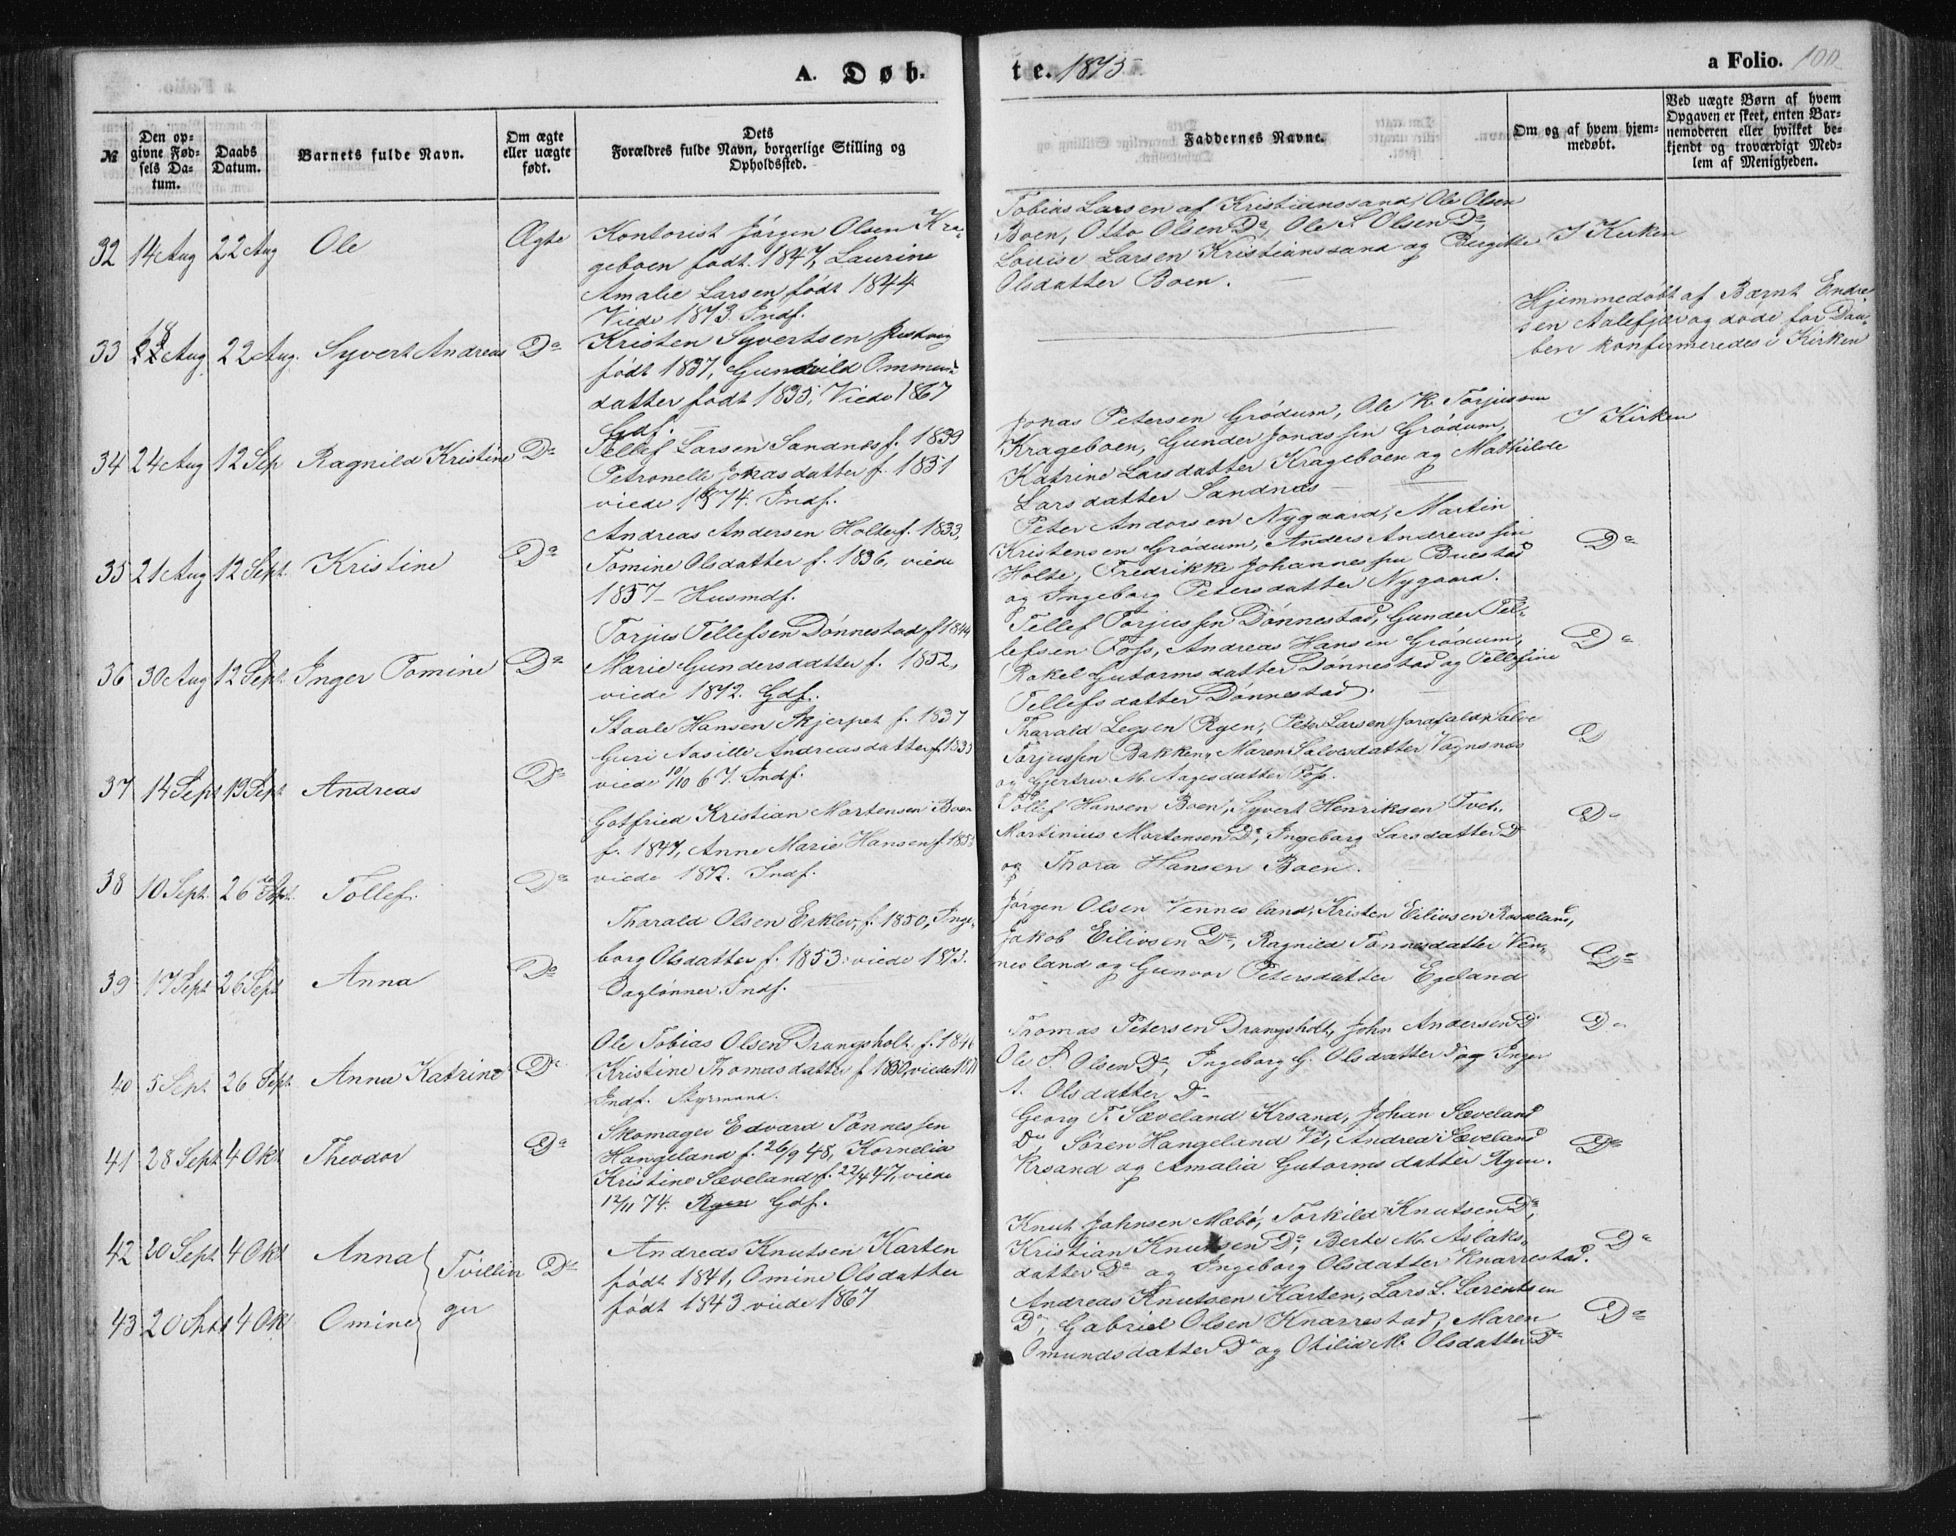 A. Døb-
te. 1875
a Folio. 100
№
Den op-
givne Fød-
sels Da-
tum.
Daabs
Datum.
Barnets fulde Navn.
Om ægte
eller uægte
født.
Dets
Forældres fulde Navn, borgerlige Stilling og
Opholdssted.
Faddernes Navne.
Om og af hvem hjem-
medøbt.
Ved uægte Børn af hvem
Opgaven er skeet, enten Bar-
nemoderen eller hvilket be-
kjendt og troværdigt Med-
lem af Menigheden.
32 14 Aug 22 Aug Ole Ægte
Kontorist Jørgen Olsen Kra-
geboen født 1847, Laurine
Amalie Larsen, født 1844
Viede 1873. Indf.
Tobias Larsen af Kristianssand, Ole Olsen
Boen, Otto Olsen Do, Ole S. Olsen Do,
Louise Larsen Kristianssand og Bergitte
Olsdatter Boen.
I Kirken
33 18 Aug 22 Aug. Syvert Andreas Do
Kristen Syvertsen
født 1837, Gunhild Ommun-
datter født 1835, Viede 1867
Gdf.
Hjemmedøbt af Bærnt Endre
sen Aalefjær og døde før Daa-
ben konfirmeredes i Kirken
34 24 Aug 12 Sep Ragnild Kristine Do
Tellef Larsen Sandnæs f. 1839
Petronelle Jonasdatter f. 1851
viede 1874. Indf.
Jonas Petersen Grødum, Ole K. Torjussen
Krageboen, Gunder Jonassen Grødum,
Katrine Larsdatter Krageboen og Mathilde
Larsdatter Sandnæs
I Kirken
35 21 Aug 12 Sept. Kristine Do
Andreas Andersen Holte f. 1833,
Tomine Olsdatter f. 1836, viede
1857 - Husmdf.
Peter Andorsen Nygaard, Martin
Kristensen Grødum, Anders Andreassen
Holte, Fredrikke Johannessen Buestad
og Ingeborg Petersdatter Nygaard.
Do
36 30 Aug 12 Sept. Inger Tomine Do
Torjus Tellefsen Dønnestad f 1844
Marie Gundersdatter f. 1852,
viede 1872. Gdf.
Tellef Torjussen Dønnestad, Gunder Tel-
lefsen Foss, Andreas Hansen Grødum,
Rakel Gutormsdatter Dønnestad og Tellefine
Tellefsdatter Dønnestad.
Do
37 14 Sept 19 Sept Andreas Do
Staale Hansen Skjerpet f. 1837
Guri Aasille Andreasdatter f 1835
viede 10/10 67. Indf.
Tharald Legsen Ryen, Peter Larsen Jordfald, Salve
Torjussen Bakken, Maren Salvesdatter Vognsnes
og Gjertru M. Aagesdatter Foss.
Do
38 10 Sept. 26 Sept. Tollef. Do
Gotfried Kristian Mortensen Boen
f. 1847, Anne Marie Hansen f. 1853
viede 1872. Indf.
Tollef Hansen Boen, Syvert Henriksen Tvet,
Martinius Mortensen Do, Ingeborg Larsdatter Do
og Thora Hansen Boen.
Do
39 17 Sept 26 Sept Anna Do
Tharald Olsen Erklev, f. 1850, Inge-
borg Olsdatter f. 1853. viede 1873.
Daglønner. Indf.
Jørgen Olsen Vennesland, Kristen Eilivsen Roseland,
Jakob Eilivsen Do, Ragnild Tønnesdatter Ven-
nesland og Gunvor Petersdatter Egeland
Do
40 5 Sept. 26 Sept Anna Katrine Do
Ole Tobias Olsen Drangsholt f. 1846
Kristine Thomasdatter f 1850, viede 1871
Indf. Styrmand.
Thomas Petersen Drangsholt, John Andersen Do
Ole S. Olsen Do, Ingeborg G. Olsdatter Do og Inger
A. Olsdatter Do
Do
41 28 Sept 4 Okt Theodor Do
Skomager Edvard Tønnessen
Hangeland f. 26/9 48, Kornelia
Kristine Sæveland f. 22/4 47, viede
12/11 74. Ryen Gdf.
Georg T. Sæveland Krsand, Johan Sæveland
Do, Søren Hangeland Ve, Andrea Sæveland
Krsand og Amalia Gutormsdatter Ryen.
Do
42 20 Sept 4 Okt Anna Tvillin Do
43 20 Sept 4 Okt Omine ger
Andreas Knutsen Karten
født 1841, Omine Olsdatter
født 1843 viede 1867
Knut Johnsen Mæbø, Torkild Knutsen Do,
Kristian Knutsen Do, Berte M. Aslaks-
datter Do og Ingeborg Olsdatter Knarrestad.
Do
Andreas Knutsen Karten, Lars L. Larentsen
Do, Gabriel Olsen Knarrestad, Maren
Omundsdatter Do og Otilia M. Olsdatter Do
Do